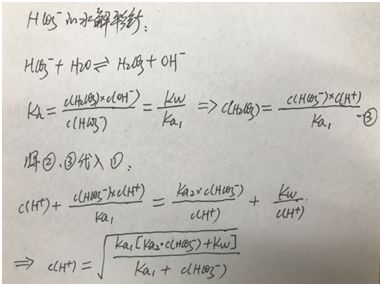 HCO₃⁻的水解平衡:
HCO₃⁻ + H2O ⇌ H₂CO₃ + OH⁻
Kh = c(H₂CO₃)×c(OH⁻) / c(HCO₃⁻) = Kw / Ka₁ ⇒ c(H₂CO₃) = c(HCO₃⁻)×c(H⁺) / Ka₁ …③
将②、③代入①:
c(H⁺) + c(HCO₃⁻)×c(H⁺) / Ka₁ = Ka₂×c(HCO₃⁻) / c(H⁺) + Kw / c(H⁺)
⇒ c(H⁺) = √(Ka₁[Ka₂·c(HCO₃⁻)+Kw] / Ka₁ + c(HCO₃⁻))